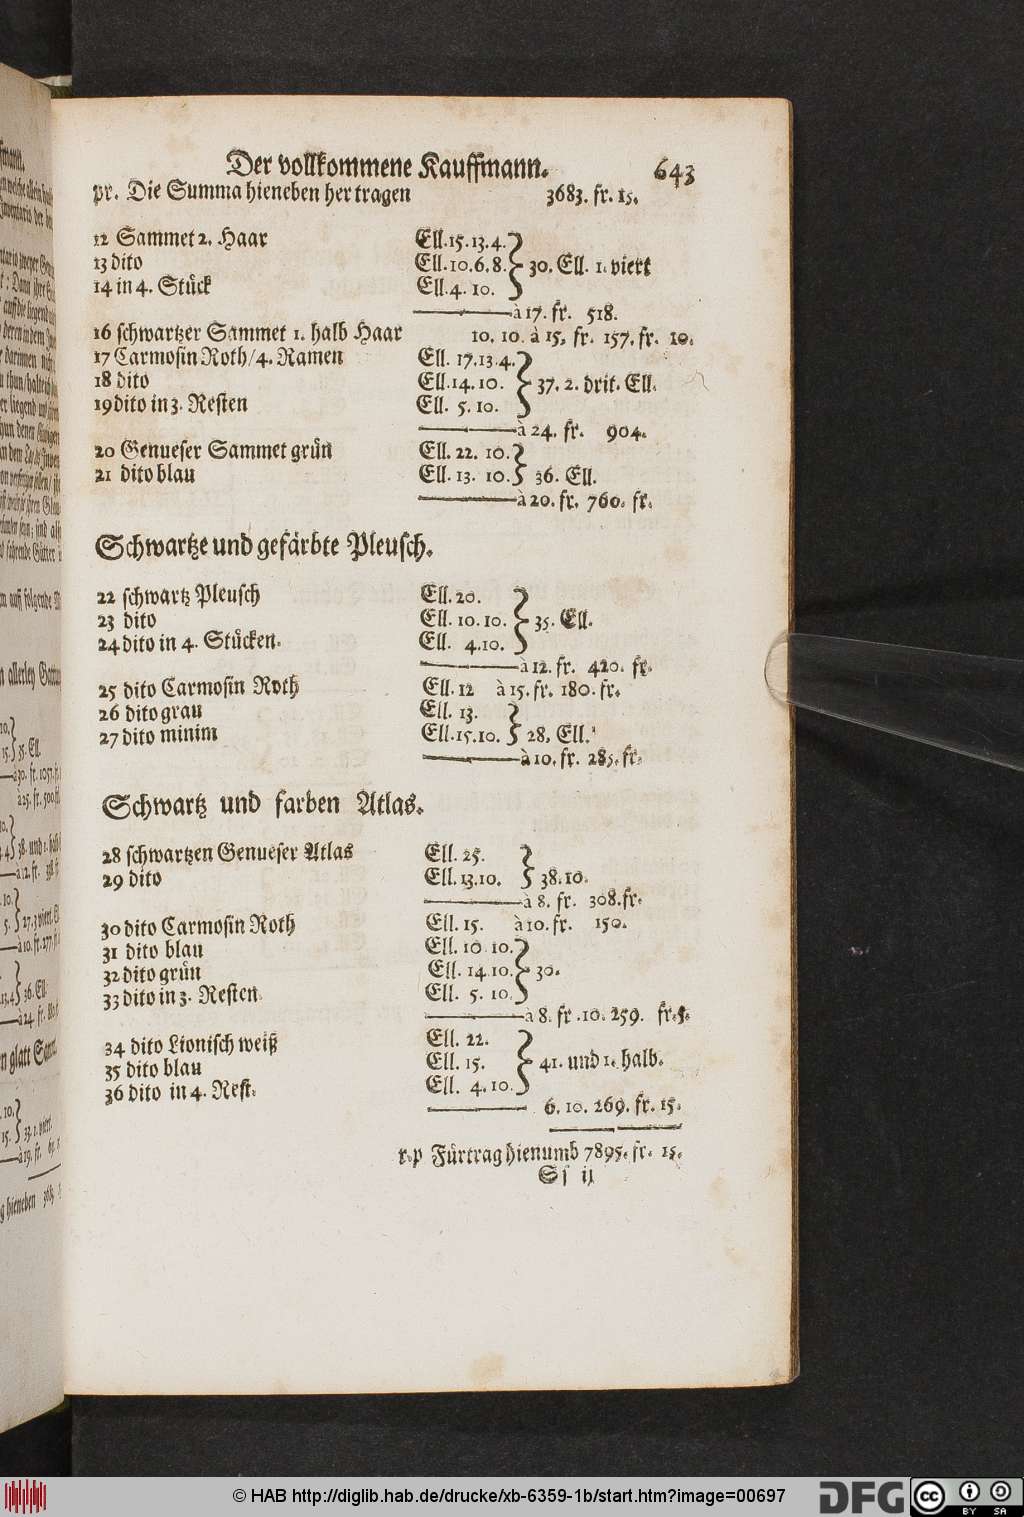 Der vollkommene Kauffmann. 643
pr. Die Summa hieneben her tragen 3683. fr. 15.
12 Sammet 2. Haar Ell. 15. 13. 4.
13 dito Ell. 10. 6. 8. 30. Ell. 1. viert
14 in 4. Stück Ell. 4. 10.
à 17. fr. 518.
16 schwartzer Sammet 1. halb Haar 10. 10. à 15. fr. 157. fr. 10.
17 Carmosin Roth/ 4. Ramen Ell. 17. 13. 4.
18 dito Ell. 14. 10. 37. 2. drit. Ell.
19 dito in 3. Resten Ell. 5. 10.
à 24. fr. 904.
20 Genueser Sammet grün Ell. 22. 10.
21 dito blau Ell. 13. 10. 36. Ell.
à 20. fr. 760. fr.
Schwartze und gefärbte Pleusch.
22 schwartz Pleusch Ell. 20.
23 dito Ell. 10. 10. 35. Ell.
24 dito in 4. Stücken. Ell. 4. 10.
à 12. fr. 420. fr.
25 dito Carmosin Roth Ell. 12 à 15. fr. 180. fr.
26 dito grau Ell. 13.
27 dito minim Ell. 15. 10. 28. Ell.
à 10. fr. 285. fr.
Schwartz und farben Atlas.
28 schwartzen Genueser Atlas Ell. 25.
29 dito Ell. 13. 10. 38. 10.
à 8. fr. 308. fr.
30 dito Carmosin Roth Ell. 15. à 10. fr. 150.
31 dito blau Ell. 10 10.
32 dito grün Ell. 14. 10. 30.
33 dito in 3. Resten Ell. 5. 10.
à 8. fr. 10. 259. fr. 5.
34 dito Lionisch weiß Ell. 22.
35 dito blau Ell. 15. 41. und 1. halb.
36 dito in 4. Rest. Ell. 4. 10.
6. 10. 269. fr. 15.
Fürtrag hienumb 7895. fr. 15.
Ss ij
© HAB http://diglib.hab.de/drucke/xb-6359-1b/start.htm?image=00697
DFG cc BY SA